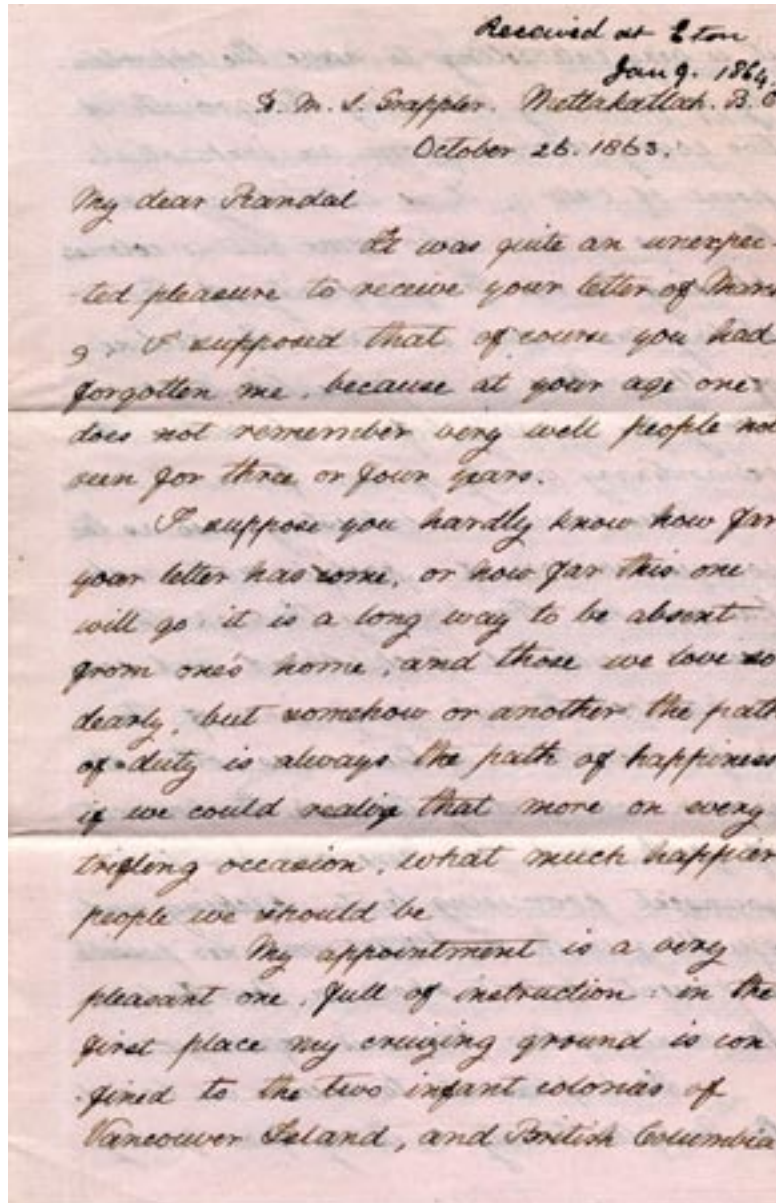 Received at Eton
Jan 9. 1864.
H. M. S. Grappler. Mettakatlah. B. C
October 26. 1863.
My dear Randal
It was quite an unexpec-
-ted pleasure to receive your letter of March
9 I supposed that of course you had
forgotten me, because at your age one
does not remember very well people not
seen for three or four years.
I suppose you hardly know how far
your letter has come, or how far this one
will go it is a long way to be absent
from one's home, and those we love so
dearly, but somehow or another the path
of duty is always the path of happiness
if we could realize that more on every
trifling occasion, what much happier
people we should be
My appointment is a very
pleasant one, full of instruction in the
first place my cruizing ground is con
-fined to the two infant colonies of
Vancouver Island, and British Columbia